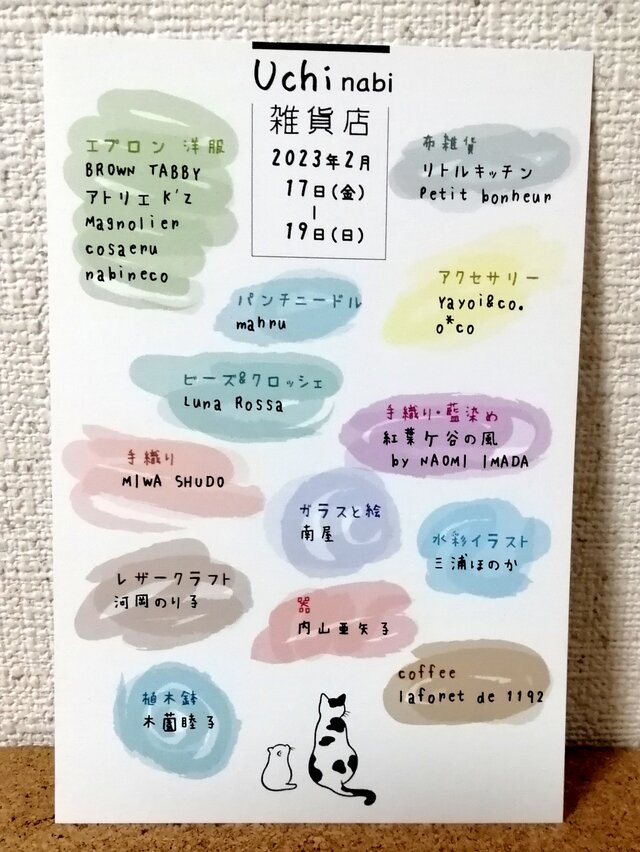 Uchi nabi
雑貨店
2023年2月
17日(金)
|
19日(日)
エプロン 洋服
BROWN TABBY
アトリエ K'z
Magnolier
cosaeru
nabineco
布雑貨
リトルキッチン
Petit bonheur
パンチニードル
mahru
アクセサリー
Yayoi&co.
o*co
ビーズ&クロッシェ
Luna Rossa
手織り・藍染め
紅葉ケ谷の風
by NAOMI IMADA
手織り
MIWA SHUDO
ガラスと絵
南屋
水彩イラスト
三浦ほのか
レザークラフト
河岡のり子
器
内山亜矢子
coffee
laforet de 1192
植木鉢
木薗睦子